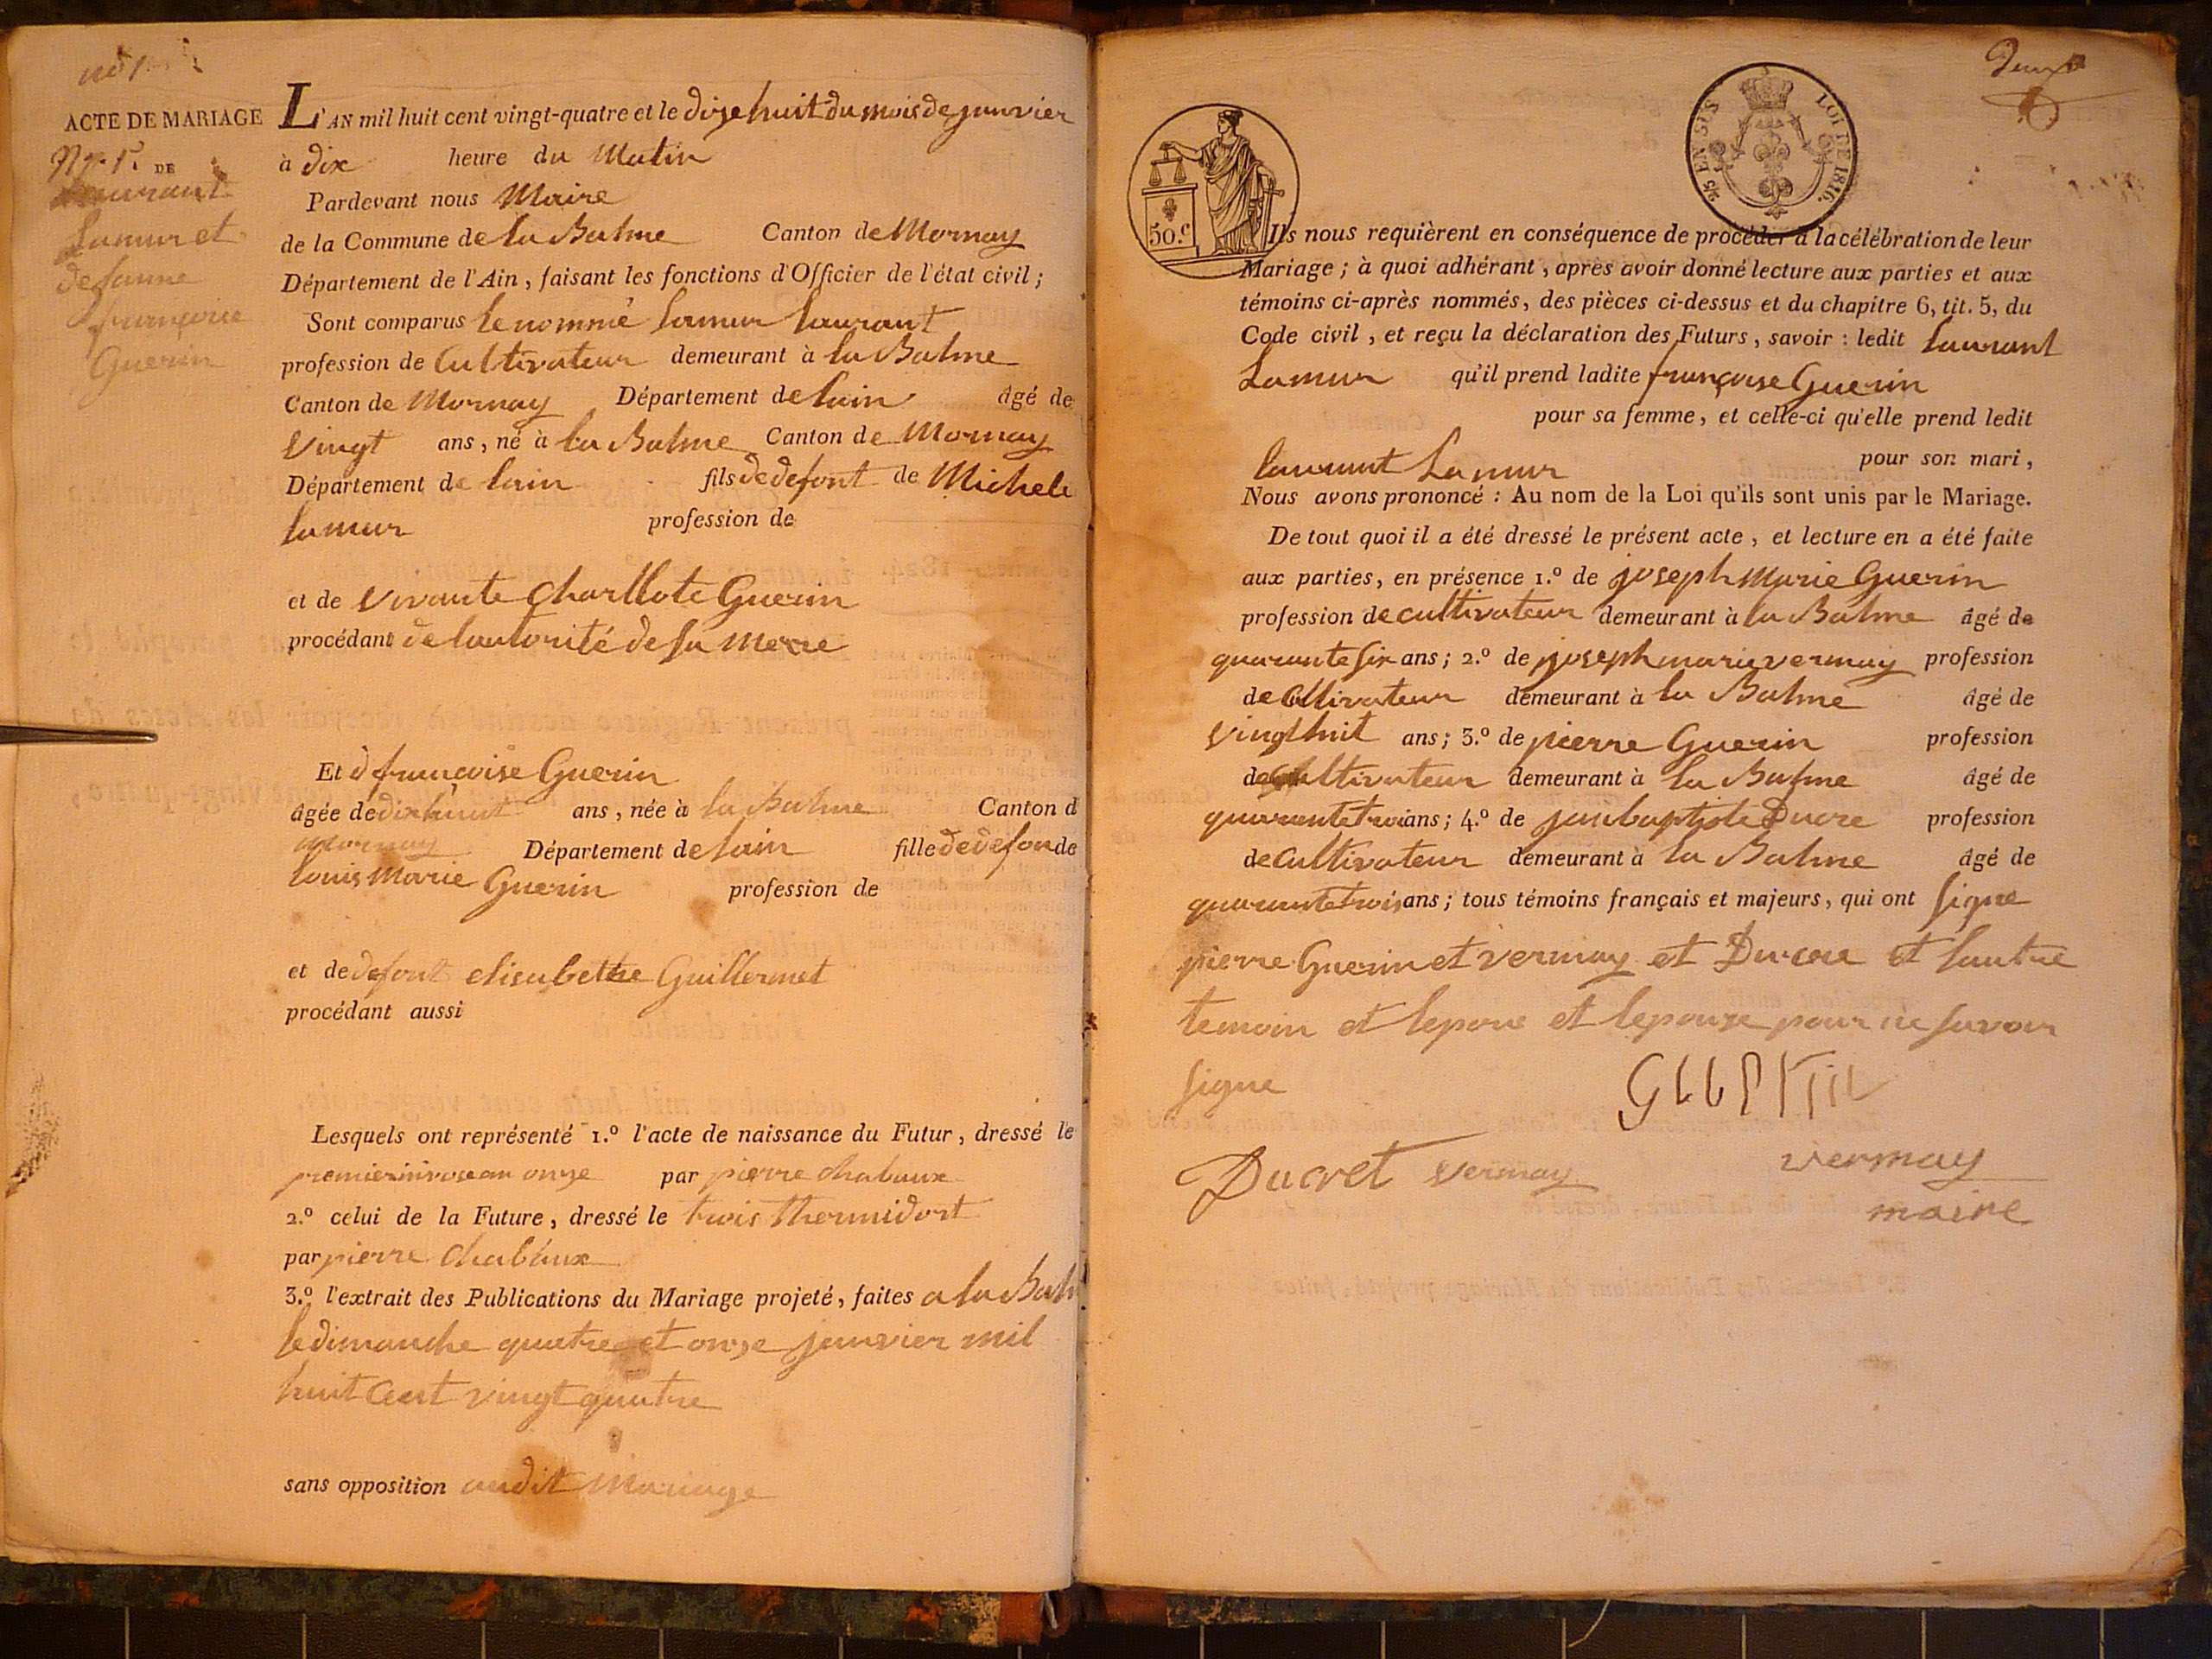 nº 1
ACTE DE MARIAGE
Nº 1er DE
Laurant
Lamur et
de Janne
françoise
Guerin
L'AN mil huit cent vingt-quatre et le dize huit du mois de janvier
à dix heure du Matin
Pardevant nous Maire
de la Commune de la Balme Canton de Mornay
Département de l'Ain, faisant les fonctions d'Officier de l'état civil;
Sont comparus le nommé lamur laurant
profession de Cultivateur demeurant à la Balme
Canton de Mornay Département de lain âgé de
vingt ans, né à la Balme Canton de Mornay
Département de lain fils de defont de Michele
lamur profession de
et de vivante Charllote Guerin
procédant de lautorité de sa merre
Et d françoise Guerin
âgée de dix huit ans, née à la Balme Canton d
Mornay Département de lain fille de defon de
louis Marie Guerin profession de
et de defont elisabethe Guillermet
procédant aussi
Lesquels ont représenté 1.º l'acte de naissance du Futur, dressé le
premier nivose an onze par pierre Chabaux
2.º celui de la Future, dressé le trois thermidort
par pierre Chabaux
3.º l'extrait des Publications du Mariage projeté, faites a la Balm
le dimanche quatre et onze janvier mil
huit Cent vingt quatre
sans opposition audit Mariage
Deux
25 EN SUS LOI DE 1816.
50.c
Ils nous requièrent en conséquence de procéder à la célébration de leur
Mariage; à quoi adhérant, après avoir donné lecture aux parties et aux
témoins ci-après nommés, des pièces ci-dessus et du chapitre 6, tit. 5, du
Code civil, et reçu la déclaration des Futurs, savoir : ledit laurant
Lamur qu'il prend ladite françoise Guerin
pour sa femme, et celle-ci qu'elle prend ledit
laurant Lamur pour son mari,
Nous avons prononcé : Au nom de la Loi qu'ils sont unis par le Mariage.
De tout quoi il a été dressé le présent acte, et lecture en a été faite
aux parties, en présence 1.º de joseph Marie Guerin
profession de cultivateur demeurant à la Balme âgé de
quarante six ans; 2.º de joseph marie vermay profession
de Cltivateur demeurant à la Balme âgé de
vingt huit ans; 3.º de pierre Guerin profession
de Cultivateur demeurant à la Balme âgé de
quarante trois ans; 4.º de jan baptiste Ducre profession
de Cultivateur demeurant à la Balme âgé de
quarante trois ans; tous témoins français et majeurs, qui ont signe
pierre Guerin et vermay et Ducre et lautre
temoin et lepoux et lepouze pour ne savoir
signe
GUERIN
Ducret vermay vermay
maire